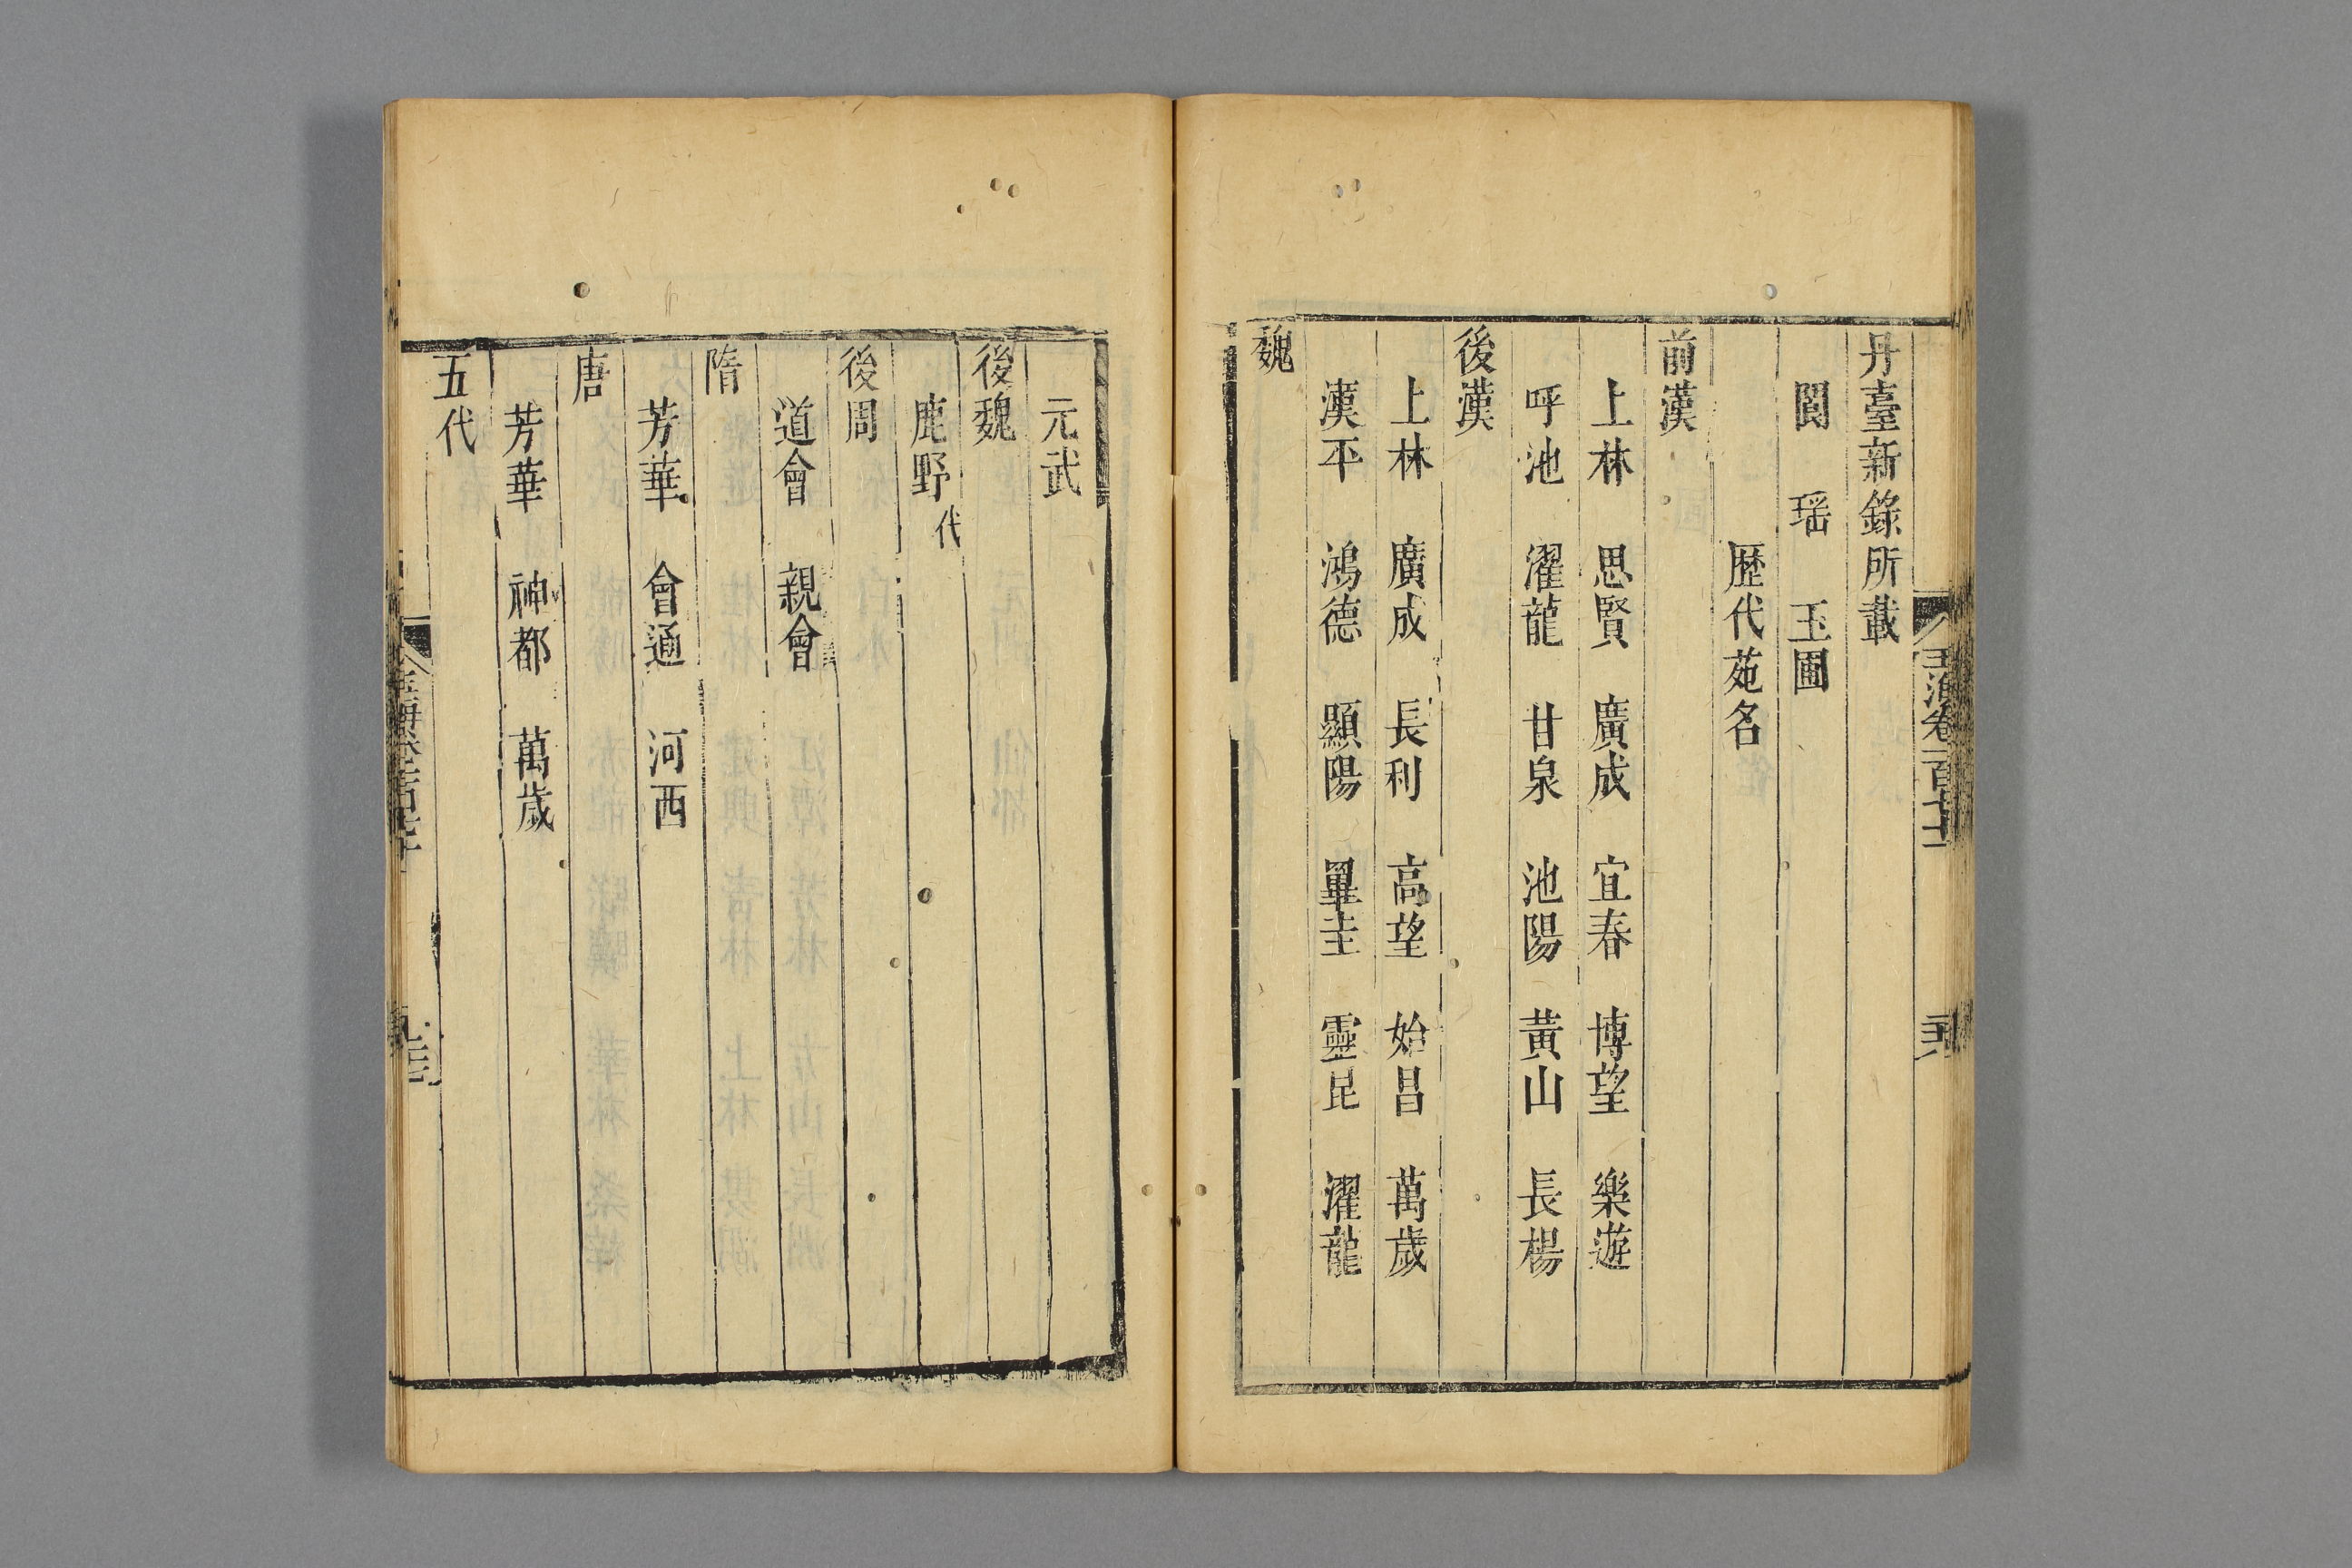 丹臺新錄所載
閬　瑶　玉圃
歷代苑名
前漢
上林　思賢　廣成　宜春　博望　樂遊
呼池　濯龍　甘泉　池陽　黃山　長楊
後漢
上林　廣成　長利　高望　始昌　萬歲
漢平　鴻德　顯陽　畢圭　靈昆　濯龍
魏
元武
後魏
鹿野代
後周
道會　親會
隋
芳華　會通　河西
唐
芳華　神都　萬歲
五代